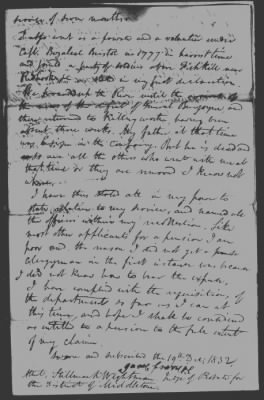 service of seven months
I also went as a private and a volunteer under
Capt. Bezaleel Bristol in 1777 in harvest time
and joined a party of soldiers above Fishkill near
in my first declaration
We proceeded up the River until the
the of the defeat of General Burgoyne and
then returned to Killingworth, having been
absent three weeks. My father at that time
was Ensign in the company. But he is dead and
so are all the others who went with me at
that time or they are moved I know not
where.
I have thus stated all in my power to
state, relative to my services, and named all
the officers within my recollection. Like
most other applicants for a pension I am
poor and the reason I did not get a
Clergyman in the first instance was because
I did not know has to bear the expense,
I have complied with the requisitions of
the department as far as I can at
this time, and hope I shall be considered
as entitled to a pension to the full extent
of my claim.
Sworn and subscribed the 19th Dec, 1832
Attest. Stillman K. Wightman Judge of Probate for
the District of Middletown.